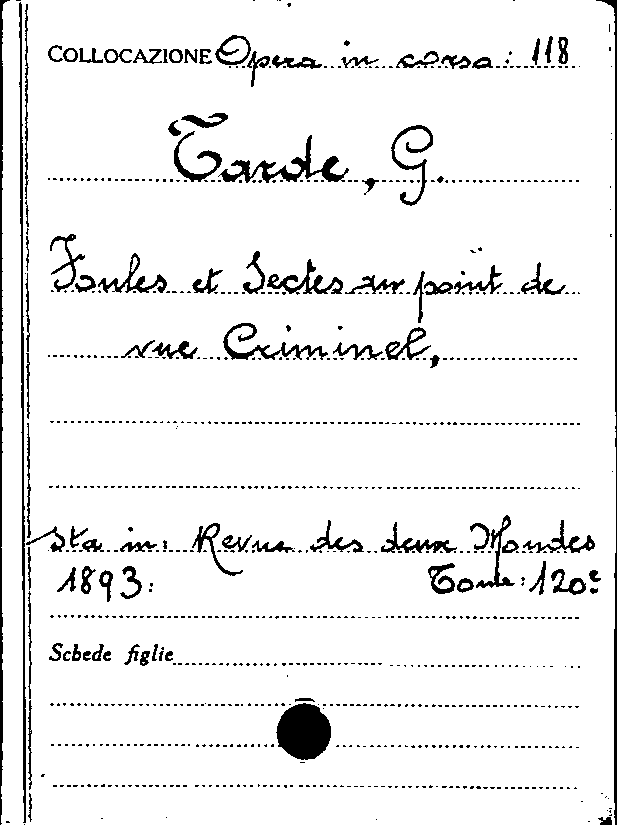 COLLOCAZIONE Opera in corso: 118
Tarde, G.
Foules et Sectes au point de
vue Criminel,
Sta in: Revue des deux Mondes
1893: Tome: 120e
Schede figlie